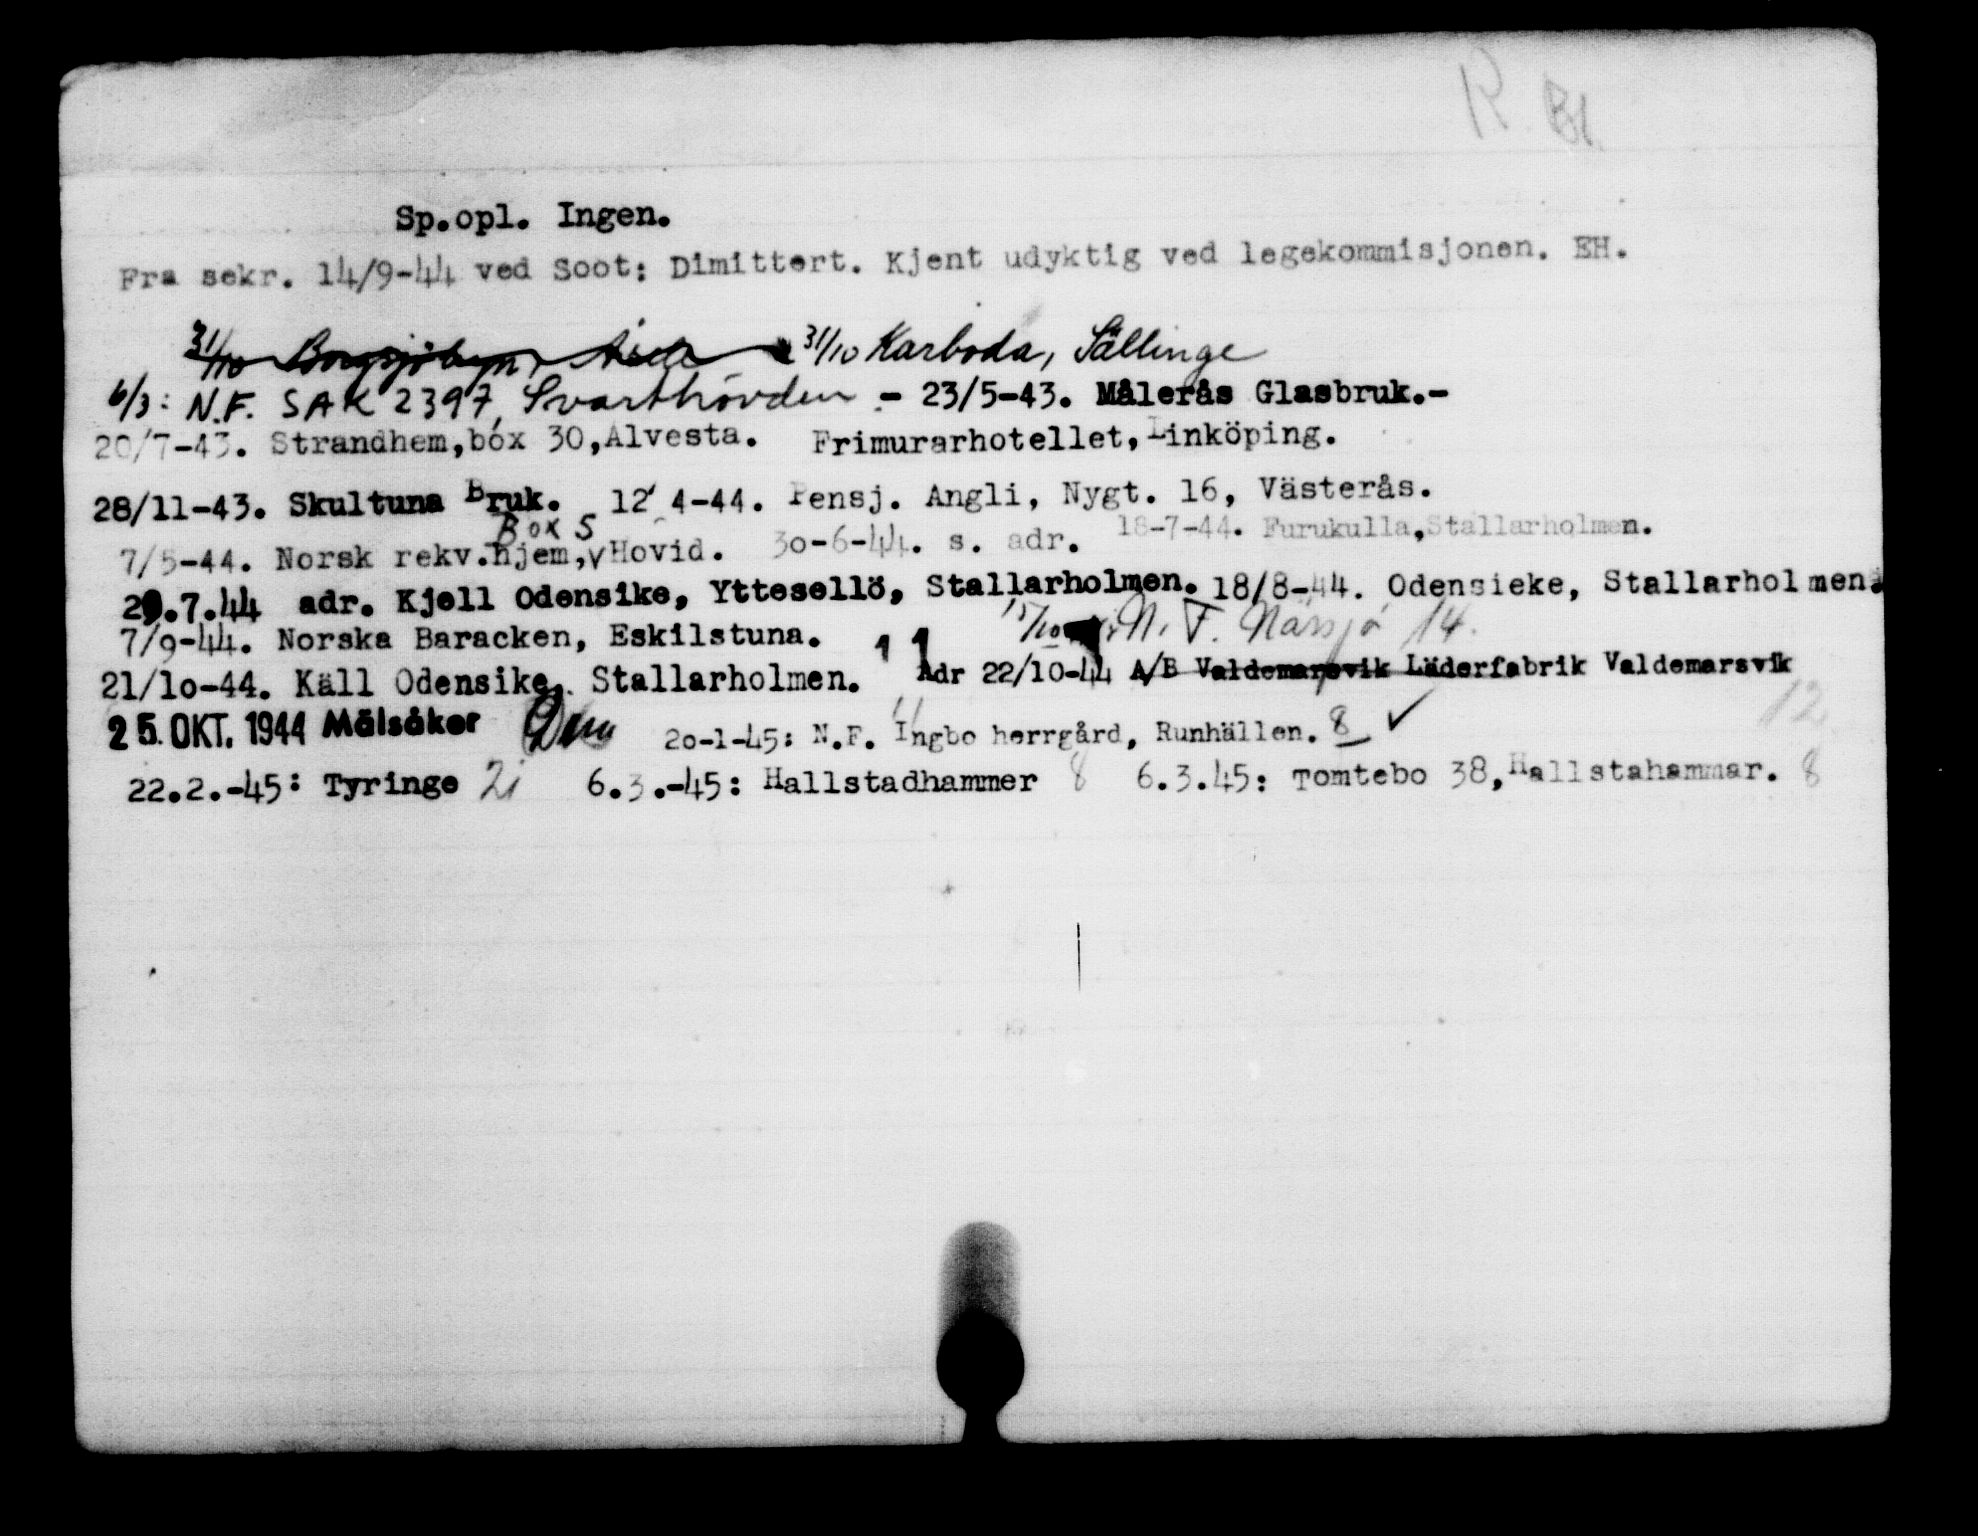 R. Bl.
Sp.opl. Ingen.
Fra sekr. 14/9-44 ved Soot: Dimittert. Kjent udyktig ved legekommisjonen. EH.
31/10 Borgsjöbyn, 31/10 Karboda, Sällinge
6/3: N.F. SAK 2397, Svarthövden .- 23/5-43. Målerås Glasbruk.-
20/7-43. Strandhem,box 30,Alvesta. Frimurarhotellet,Linköping.
28/11-43. Skultuna Bruk. 12 4-44. Pensj. Angli, Nygt. 16, Västerås.
Box 5
7/5-44. Norsk rekv.hjem,vHovid. 30-6-44. s. adr. 18-7-44. Furukulla,Stallarholmen.
29.7.44 adr. Kjell Odensike, Yttesellö, Stallarholmen. 18/8-44. Odensieke, Stallarholmen.
7/9-44. Norska Baracken, Eskilstuna. 11 15/10 N.F. Nässjö 14.
21/10-44. Käll Odensike, Stallarholmen. Adr 22/10-44 A/B Valdemarsvik Läderfabrik Valdemarsvik
12
25. OKT. 1944 Mälsåker 20-1-45: N.F. Ingbo herrgård, Runhällen. 8 ✓
22.2.-45: Tyringe 21 6.3.-45: Hallstadhammer 8 6.3.45: Tomtebo 38,Hallstahammar. 8